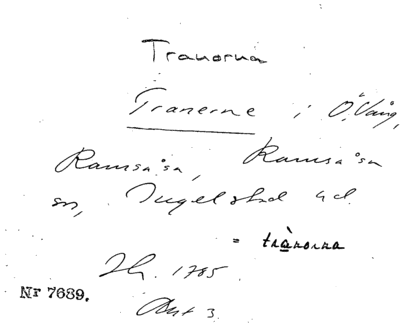 Tranorna
Tranerne i Ö. Vång,
Ramsåsa, Ramsåsa
sn, Ingelstad hd
= trànorna
Jh. 1785
Nr 7689.
Akt 3